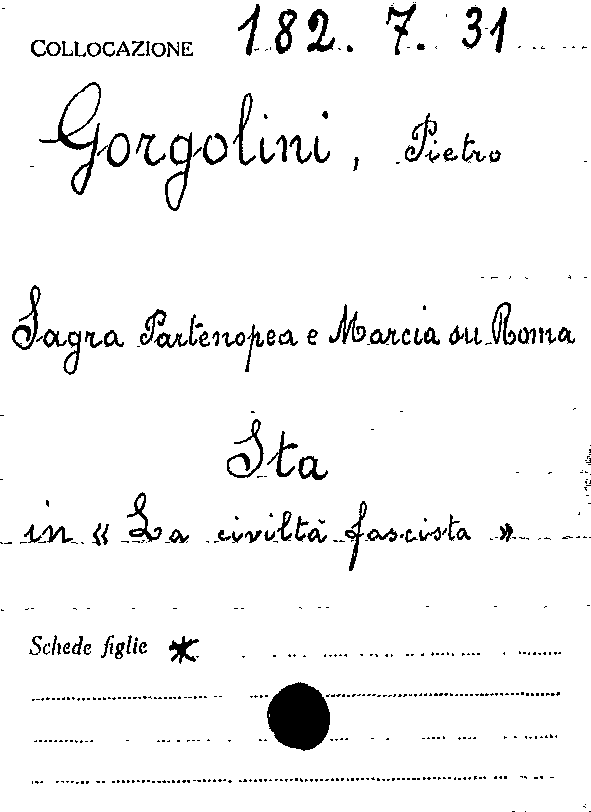 COLLOCAZIONE 182. 7. 31
Gorgolini, Pietro
Sagra Partenopea e Marcia su Roma
Sta
in « La civiltà fascista »
Schede figlie *